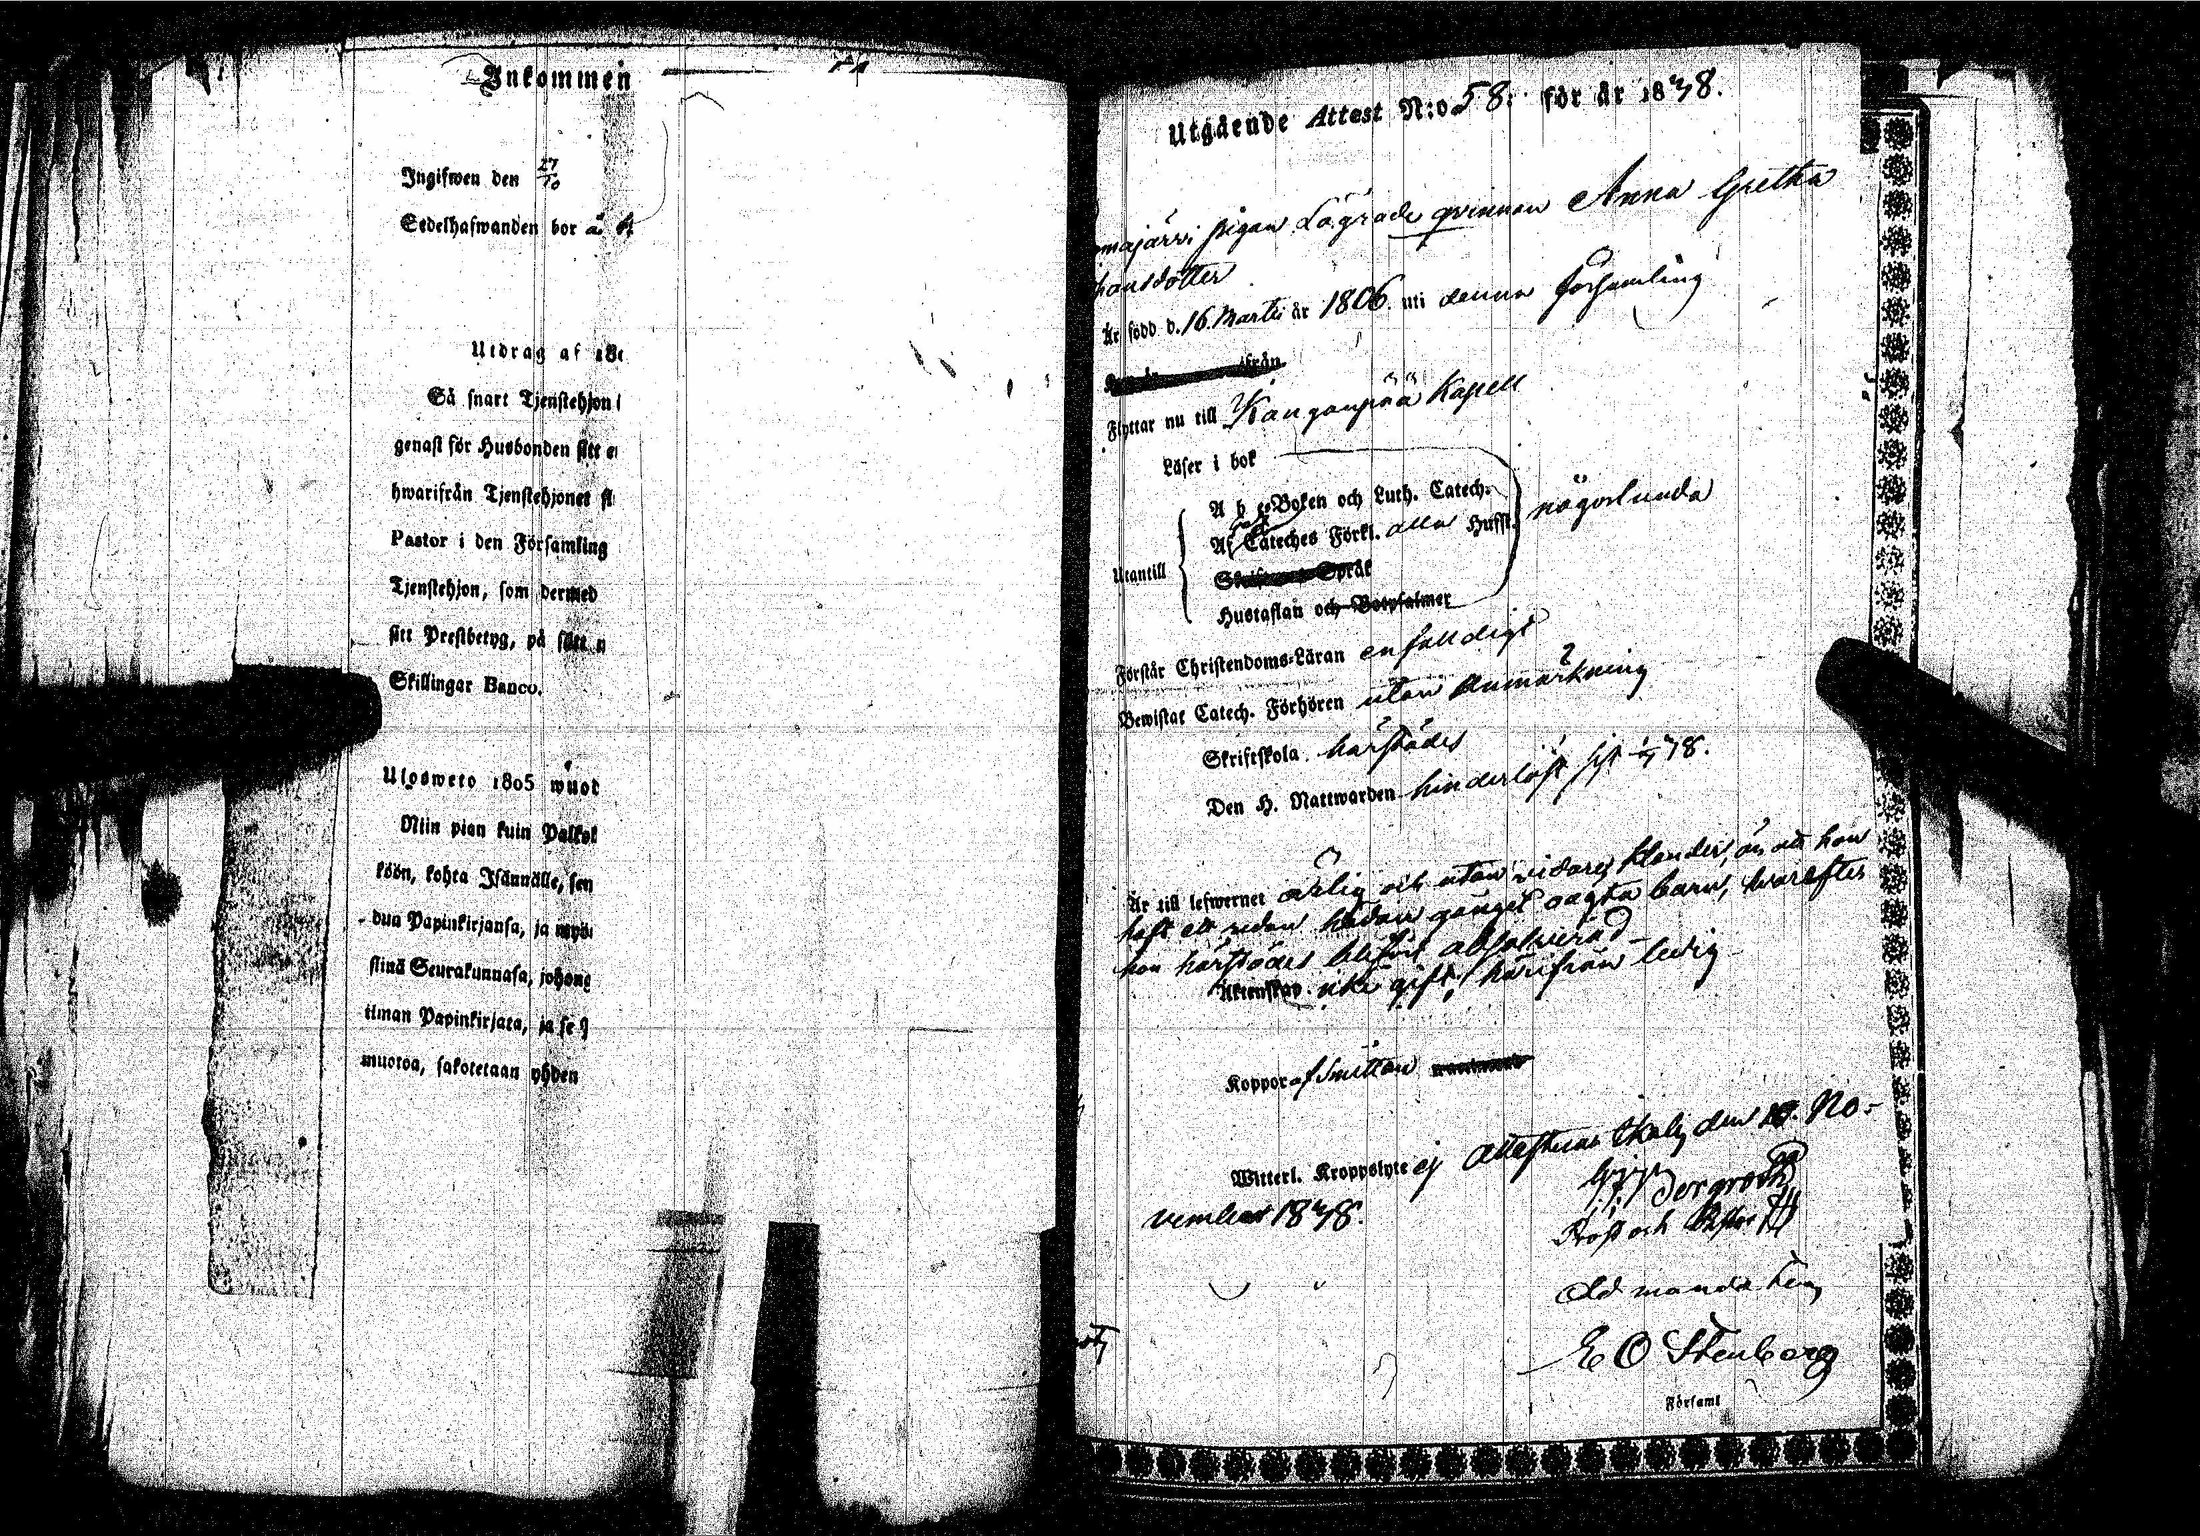 Inkommen
Ingifwen den 27/10
Sedelhafwanden bor å
Utdrag af 180
Så snart Tjenstehjon
genast för Husbonden sitt
hwarifrån Tjenstehjonet
Pastor i den Församling
Tjenstehjon, som dermed
sitt Prestbetyg, på sätt
Skillingar Banco.
Ulosweto 1805 wuod
Niin pian kuin Palkol
köön, kohta Isännälle, sen
dun Papinkirjansa, ja myö
stinä Seurakunnasa, johong
ilman Papinkirjata, ja se
muotoa, sakotetaan yhden
Utgående Attest N:o 58. för år 1838.
majärvi pigan Lägrade qvinnan Anna Gretha
hansdotter
Är född d. 16 Martii år 1806 uti denna församling
ifrån
Flyttar nu till Kanganpää Kapell
Läser i bok
A b c-Boken och Luth. Catech.
Cateches Förkl. alla Husst. någorlunda
Utantill
Språk
Hustaflan och Botpsalmer
Förstår Christendoms-Läran enfaldigt
Bewistat Catech. Förhören utan Anmärkning
Skriftskola härstädes
Den H. Nattwarden hinderlöst sist 38.
Är till lefwernet ärlig och utan vidare klander, än att hon
haft ett redan gånget oägta barn, hvarefter
hon härstädes blifvit absolverad
Äktenskap icke gift, härifrån ledig
Koppor af Smittan
Witterl. Kroppslyte ej Attesteras Ikalis den No-
vember 1838.
Bergroth
Prost och Pastor
Ad mandatum
E O Stenberg
Församl